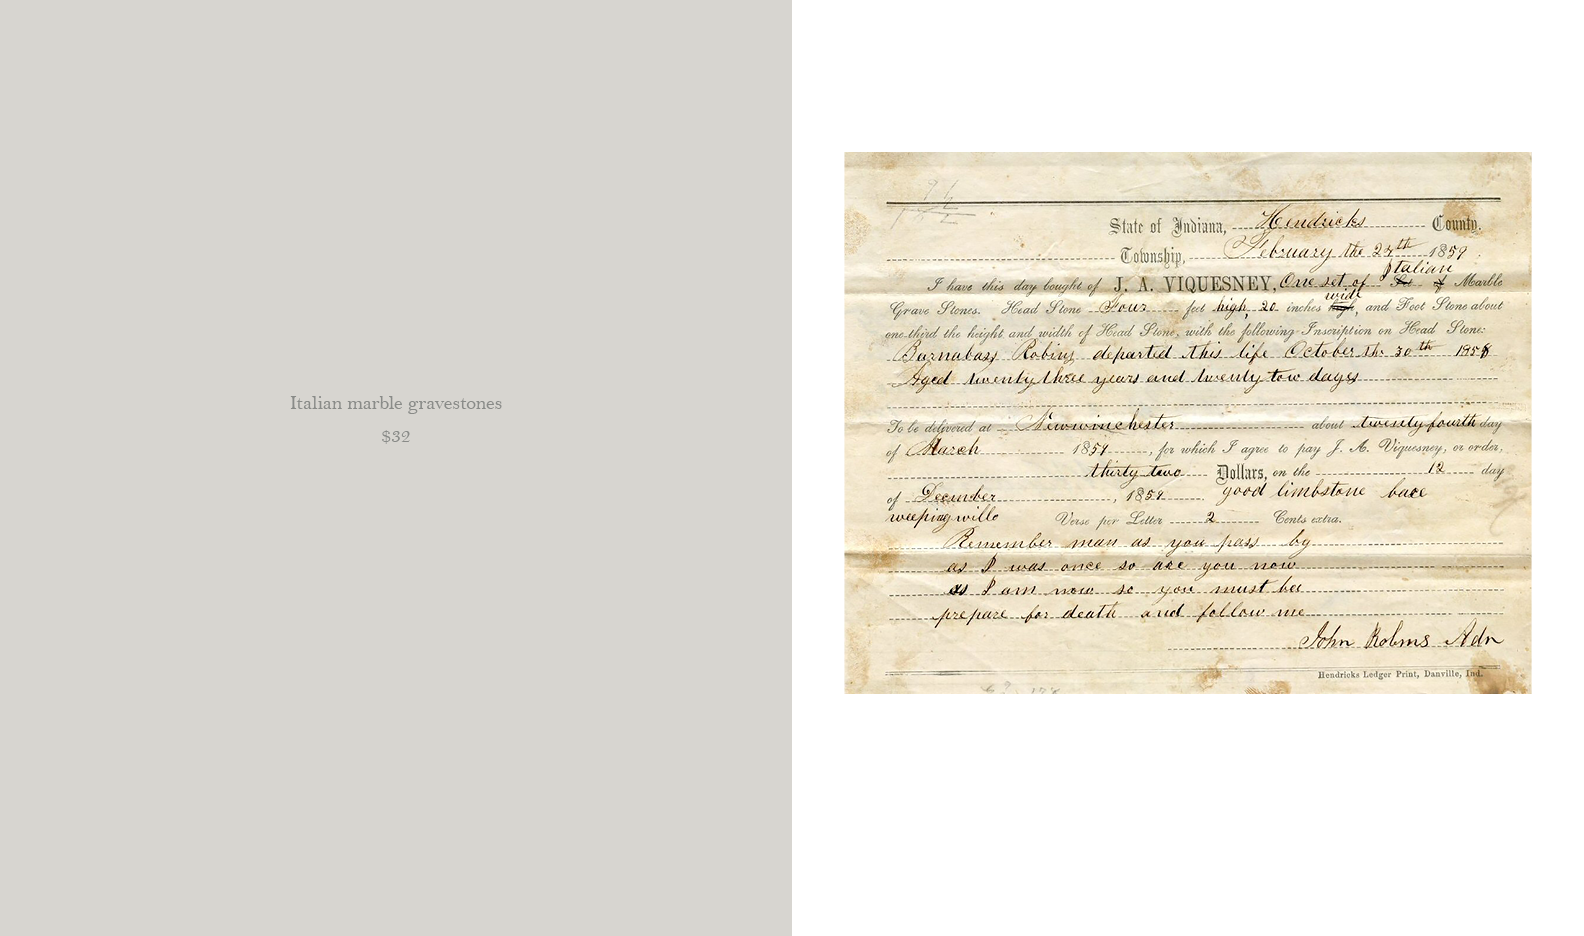 Italian marble gravestones
$32
State of Indiana, Hendricks County.
Township, February the 24th 1859
Italian
I have this day bought of J. A. VIQUESNEY, One set of Marble
wide
Grave Stones. Head Stone Four feet high, 20 inches high, and Foot Stone about
one-third the height and width of Head Stone, with the following Inscription on Head Stone:
Barnabass Robins departed this life October th. 30th 1958
Aged twenty three years and twenty tow dayes
To be delivered at Newwinchester about twenty fourth day
of March 1859, for which I agree to pay J. A. Viquesney, or order,
thirty two Dollars, on the 12 day
of December, 1859 good limbstone bace
weeping willo Verse per Letter 2 Cents extra.
Remember man as you pass by
as I was once so are you now
as I am now so you must be
prepare for death and follow me
John Robins Adn
Hendricks Ledger Print, Danville, Ind.